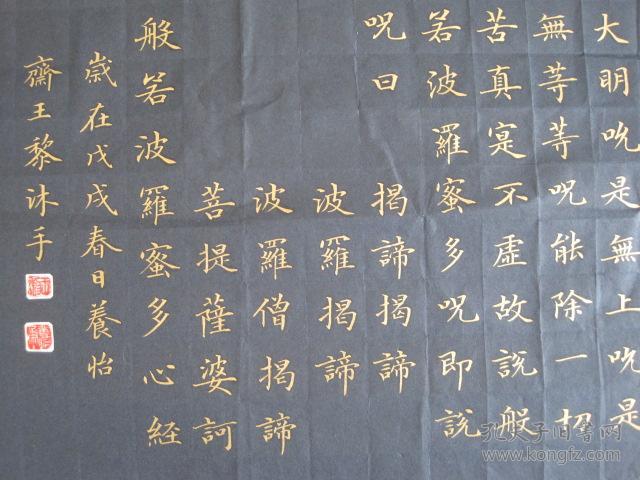 大明呪是無上呪是
無等等呪能除一切
苦真寔不虛故說般
若波羅蜜多呪即說
呪曰 揭諦揭諦
波羅揭諦
波羅僧揭諦
菩提薩婆訶
般若波羅蜜多心経
歲在戊戌春日養怡
齋王黎沐手
孔夫子旧书网
www.kongfz.com